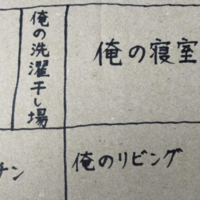 俺の洗濯干し場
俺の寝室
チン
俺のリビング